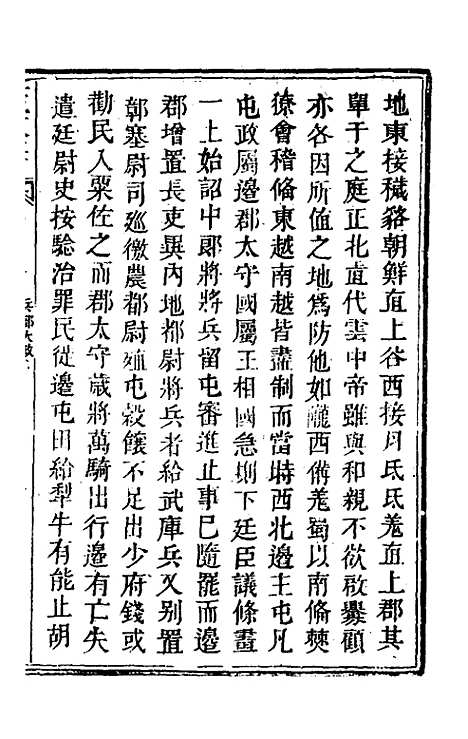 地東接穢貉朝鮮直上谷西接月氏氐羌直上郡其
單于之庭正北直代雲中帝雖與和親不欲啟釁顧
亦各因所值之地爲防他如隴西備羌蜀以南備僰
獠會稽備東越南越皆盡制而當時西北邊主屯凡
屯政屬邊郡太守國屬王相國急則下廷臣議條畫
一上始詔中郎將將兵留屯審進止事已隨罷而邊
郡增置長吏與內地都尉將兵者給武庫兵又别置
鄣塞尉司巡徼農都尉殖屯穀饟不足出少府錢或
勸民入粟佐之而郡太守歲將萬騎出行邊有亡失
遣廷尉史按驗治罪民徙邊屯田給犁牛有能止胡